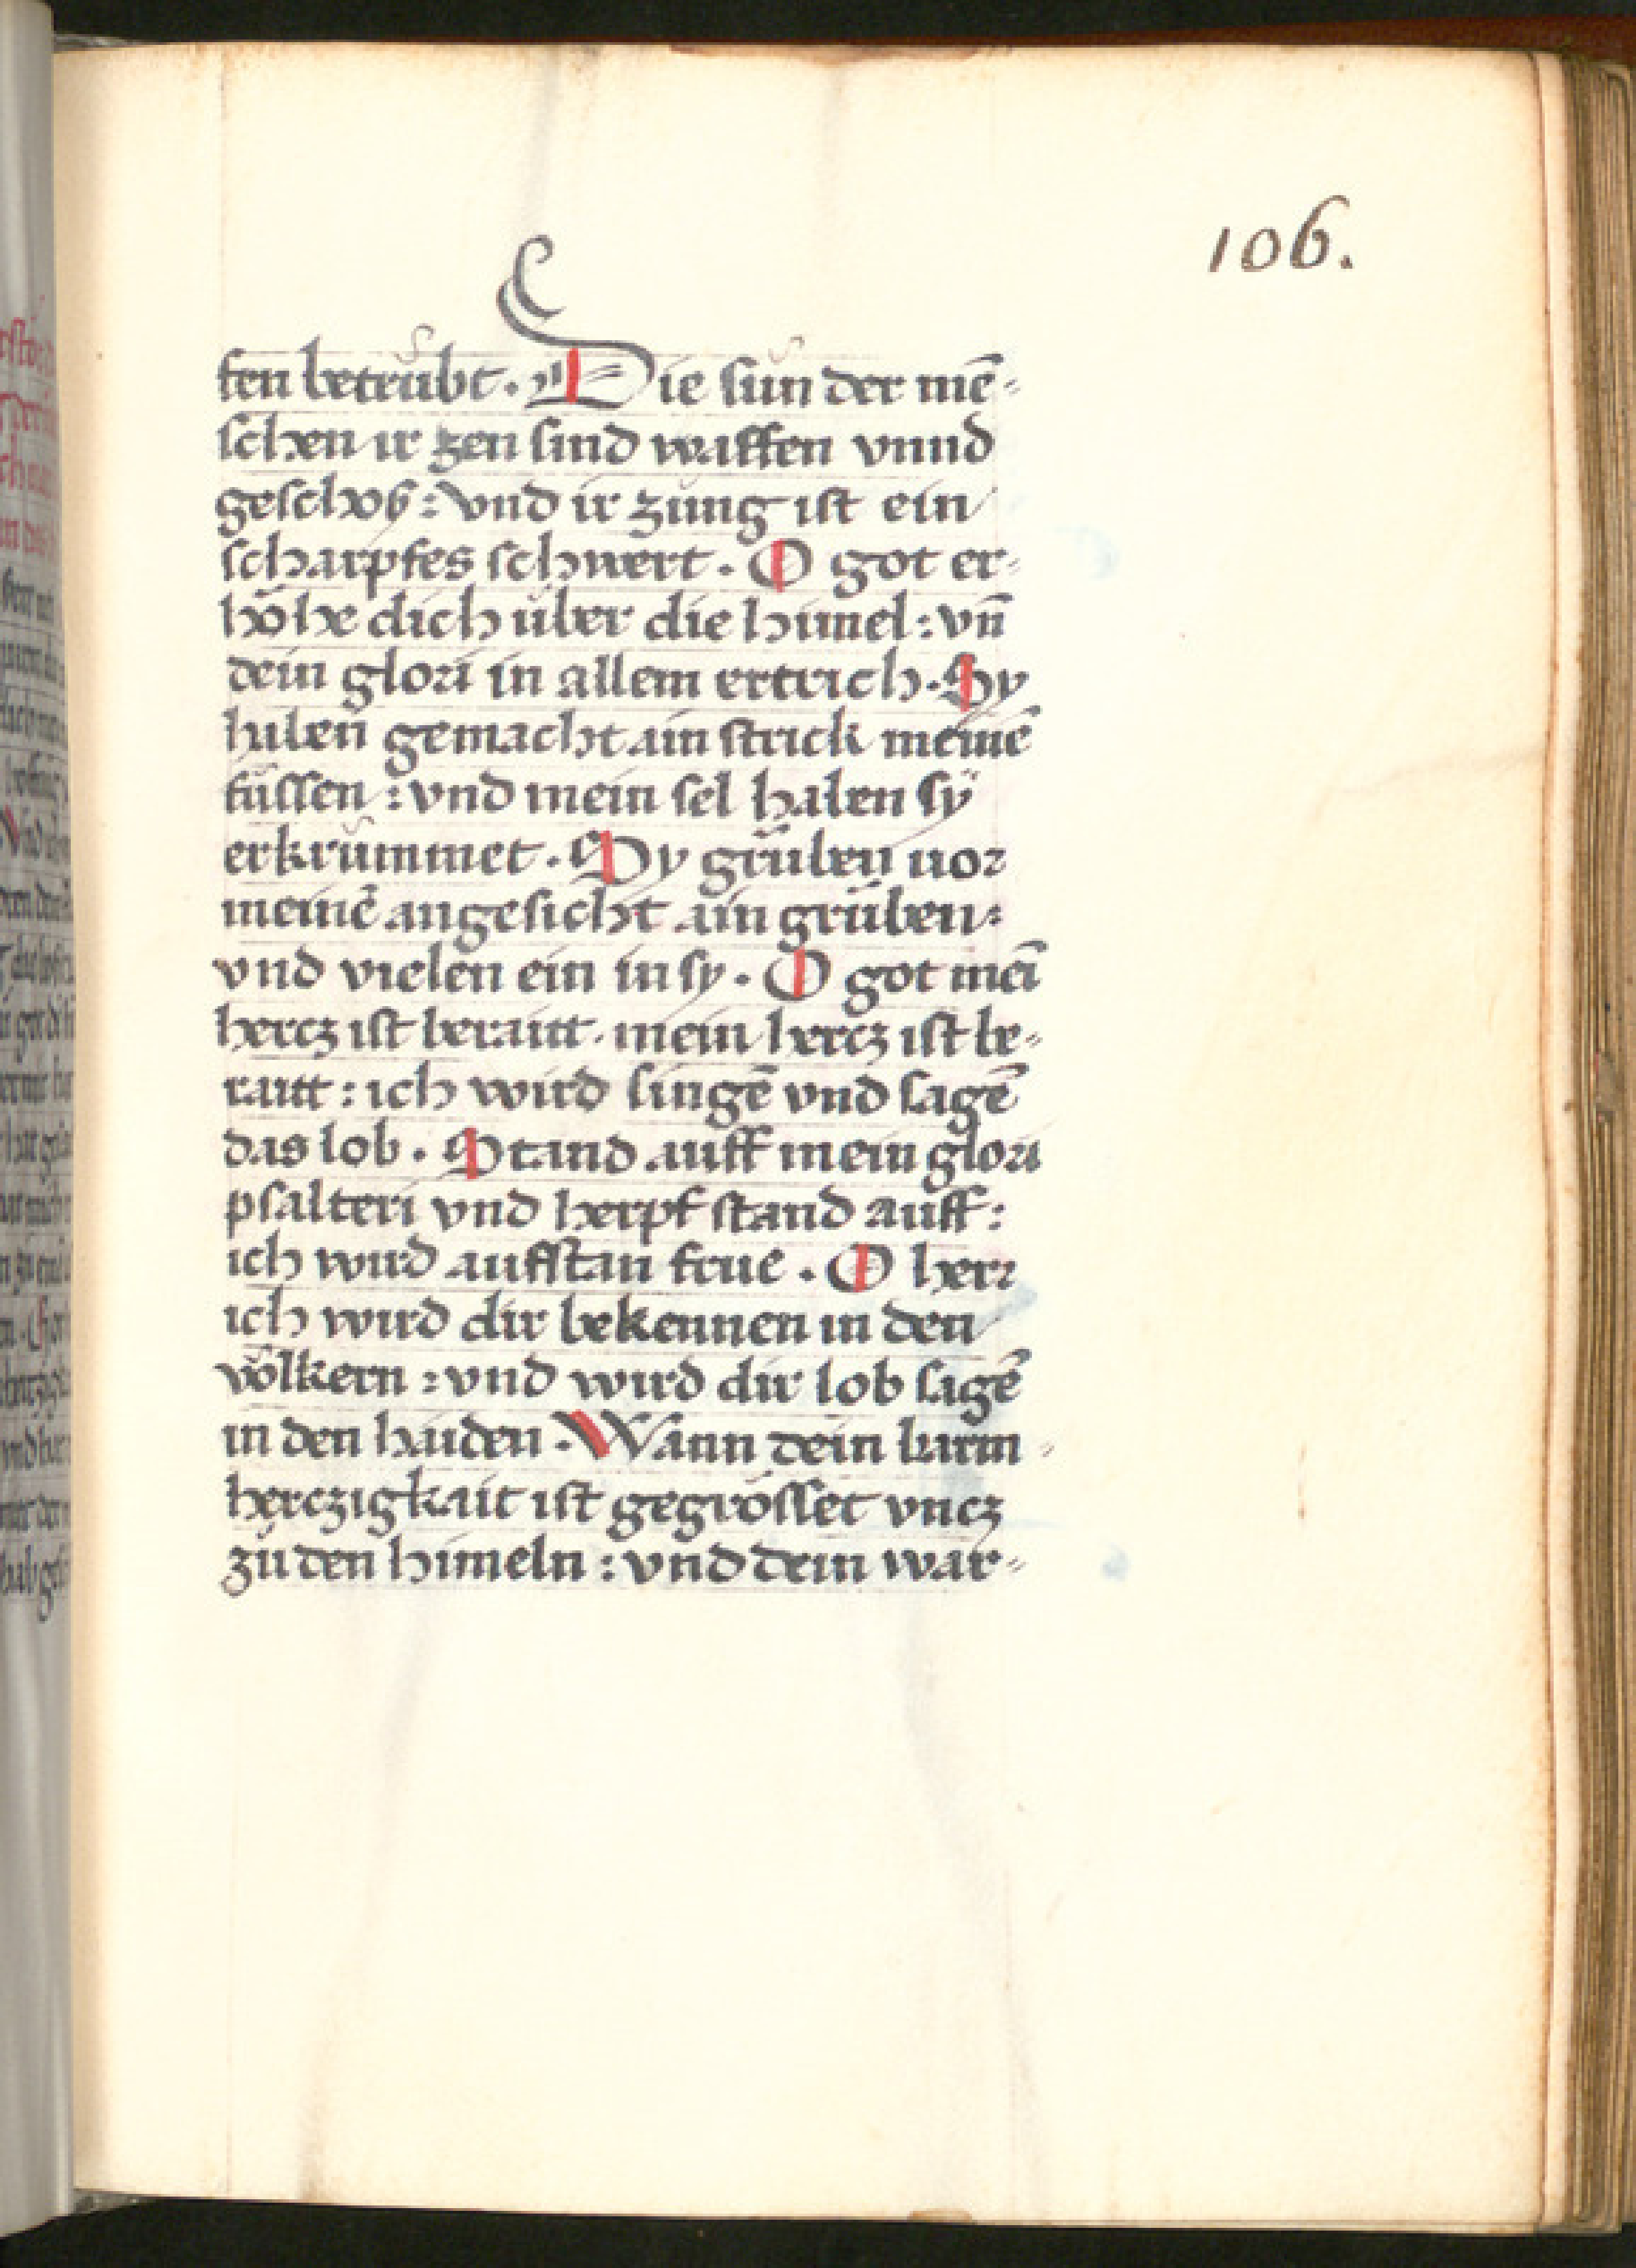 106.
fen betrůbt. Die sůn der mē-
schen ir zen sind waffen vnnd
geschoß: vnd ir zung ist ein
scharpfes schwert. O got er-
höhe dich über die himel: vn̄
dein glori in allem ertrich. Sy
haben gemacht ain strick meinē
füssen: vnd mein sel haben sÿ
erkrůmmet. Sy grůben uor
meinē angesicht ain grůben:
vnd vielen ein in sy. O got mei̅
hercz ist beraitt. mein hercz ist be-
raitt: ich wird singē vnd sagē
das lob. Stand auff mein glori
psalteri vnd herpf stand auff:
ich wird auffstan frue. O herr
ich wird dir bekennen in den
völkern: vnd wird dir lob sagē
in den haiden. Wann dein barm-
herczigkait ist gegrösset vncz
zů den himeln: vnd dein war-